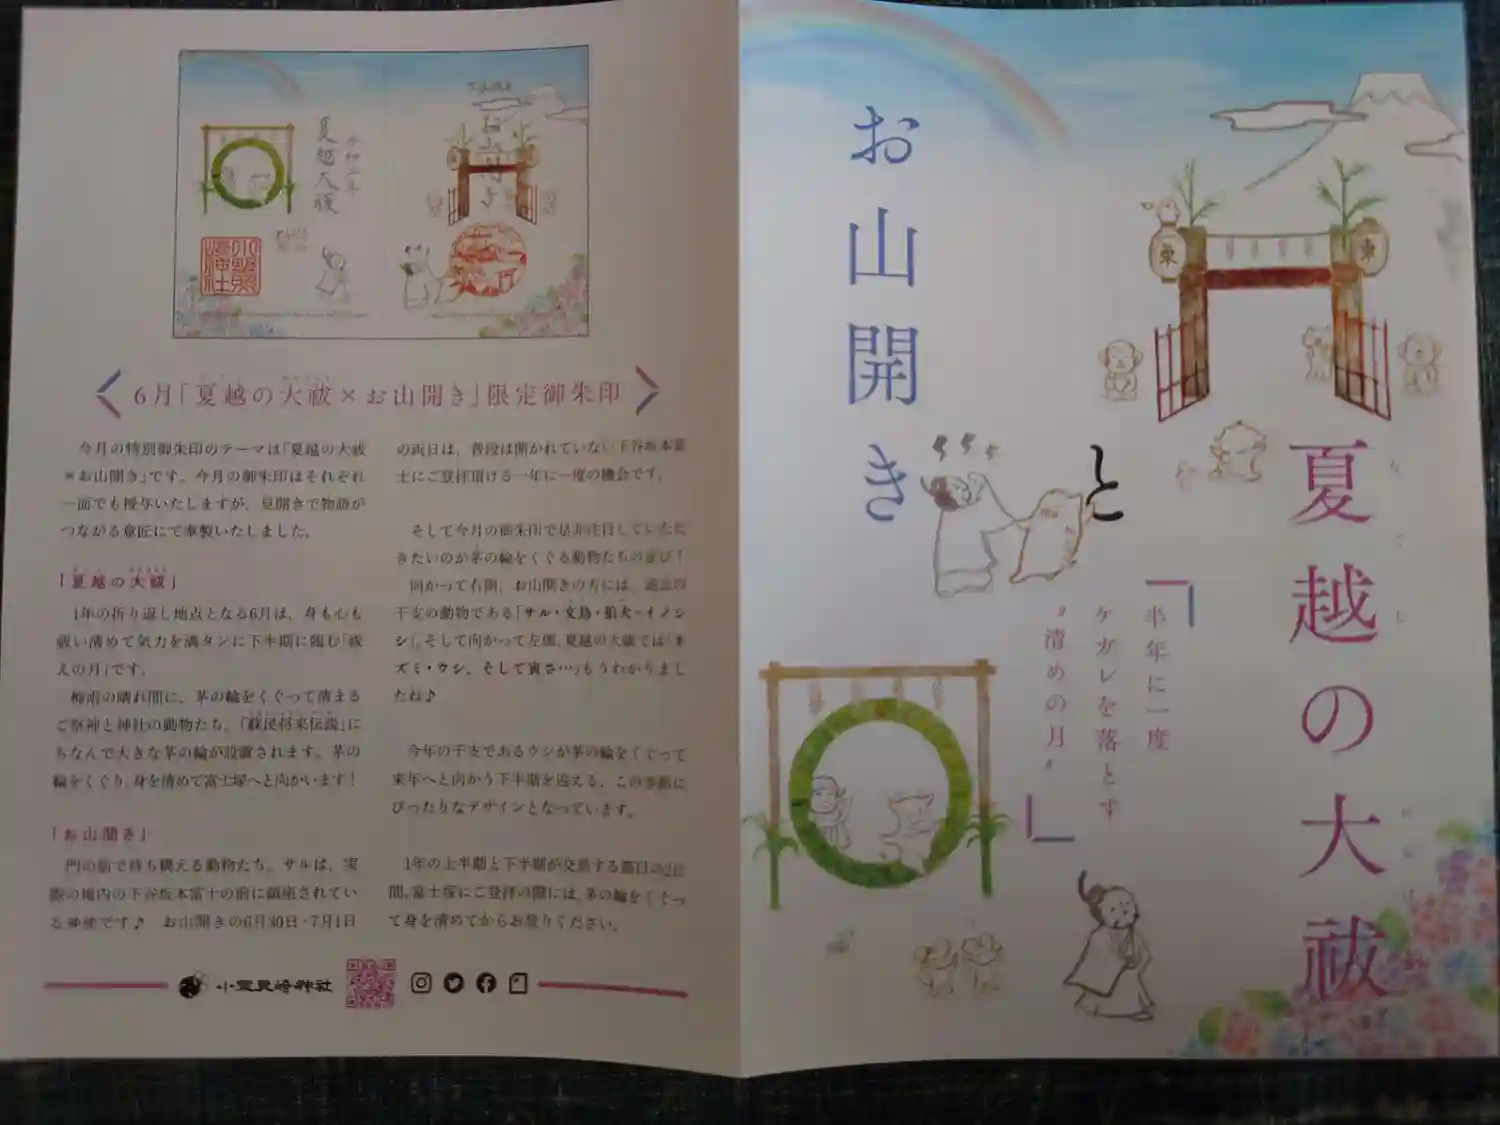 夏越の大祓
と
お山開き
半年に一度
ケガレを落とす
〝清めの月〟
東
東
夏越大祓
6月「夏越の大祓×お山開き」限定御朱印
今月の特別御朱印のテーマは「夏越の大祓
×お山開き」です。今月の御朱印はそれぞれ
一面でも授与いたしますが、見開きで物語が
つながる意匠にて奉製いたしました。
「夏越の大祓」
1年の折り返し地点となる6月は、身も心も
祓い清めて気力を満タンに下半期に臨む「祓
えの月」です。
梅雨の晴れ間に、茅の輪をくぐって清まる
ご祭神と神社の動物たち。「蘇民将来伝説」に
ちなんで大きな茅の輪が設置されます。茅の
輪をくぐり、身を清めて富士塚へと向かいます!
「お山開き」
門の前で待ち構える動物たち。サルは、実
際の境内の下谷坂本富士の前に鎮座されてい
る神使です♪ お山開きの6月30日・7月1日
の両日は、普段は開かれていない下谷坂本富
士にご登拝頂ける一年に一度の機会です。
そして今月の御朱印で是非注目していただ
きたいのが茅の輪をくぐる動物たちの並び!
向かって右側、お山開きの方には、過去の
干支の動物である「サル・文鳥・狛犬・イノシ
シ」。そして向かって左側、夏越の大祓では「ネ
ズミ・ウシ、そして寅さ…」もうわかりまし
たね♪
今年の干支であるウシが茅の輪をくぐって
来年へと向かう下半期を迎える、この季節に
ぴったりなデザインとなっています。
1年の上半期と下半期が交差する節目の2日
間、富士塚にご登拝の際には、茅の輪をくぐっ
て身を清めてからお登りください。
小野照崎神社